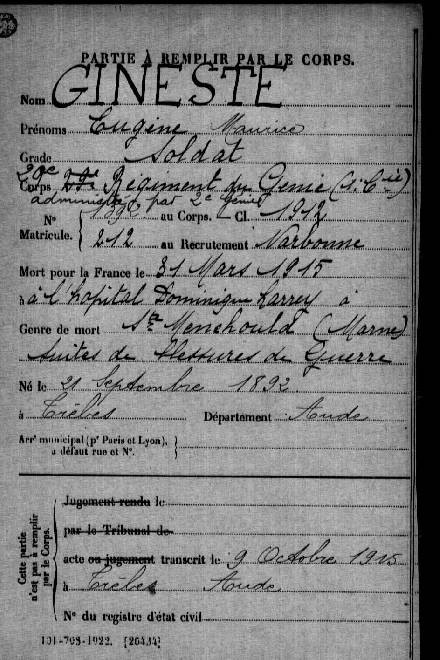 PARTIE À REMPLIR PAR LE CORPS.
Nom GINESTE
Prénoms Eugène, Maurice
Grade Soldat
Corps Régiment du Génie (1re Cie)
administré par 2e Génie
N° Matricule. { au Corps. Cl. 1912
212 au Recrutement Narbonne
Mort pour la France le 31 Mars 1915
à à l'hôpital Dominique Larrey à
Genre de mort Ste Menehould (Marne)
Suites de Blessures de Guerre
Né le 21 Septembre 1892
à Trèbes Département Aude
Arrt municipal (pr Paris et Lyon), à défaut rue et N°. }
Cette partie n'est pas à remplir par le Corps.
Jugement rendu le
par le Tribunal de
acte ou jugement transcrit le 9 Octobre 1915
à Trèbes Aude
N° du registre d'état civil
101-708-1922. [26434]